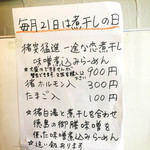 毎月21日は煮干しの日
猪突猛進 一途な恋煮干し
味噌煮込みらーめん
900円
猪ホルモン入 300円
たまご入 100円
猪白湯と煮干しを合わせ
徳島の御膳味噌を
使た味噌煮込みらーめん